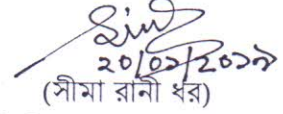 ২০/০১/২০১৯
(সীমা রানী ধর)